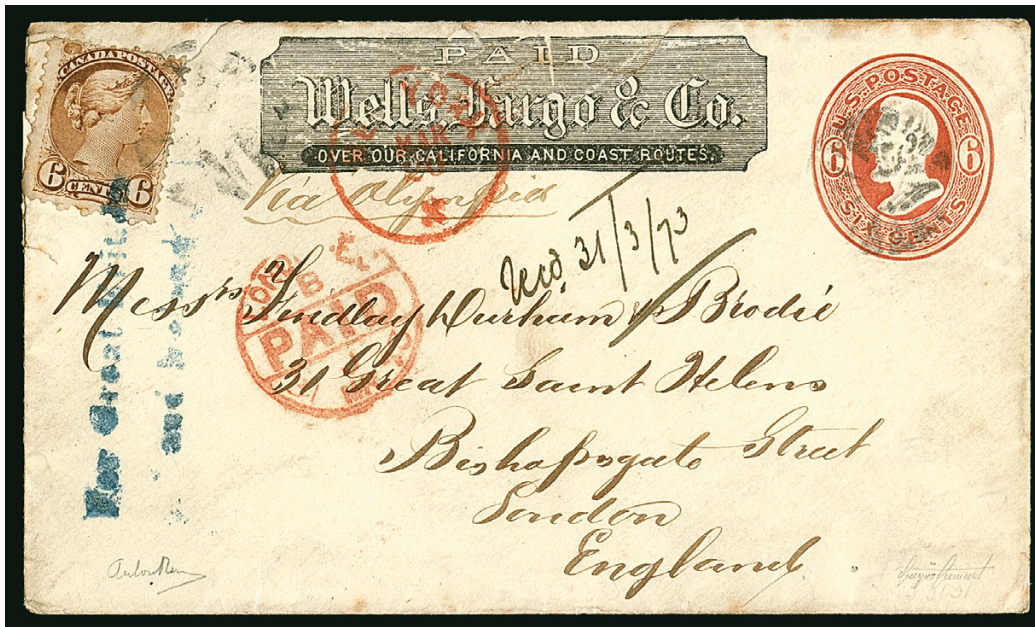 CANADA POSTAGE
6 CENTS 6
PAID
Wells, Fargo & Co.
OVER OUR CALIFORNIA AND COAST ROUTES.
U.S. POSTAGE
6 6
SIX CENTS
Via Olympia
Recd 31/3/73
PAID
Messrs Findlay Durham & Brodie
31 Great Saint Helens
Bishopsgate Street
London
England
For Great
and